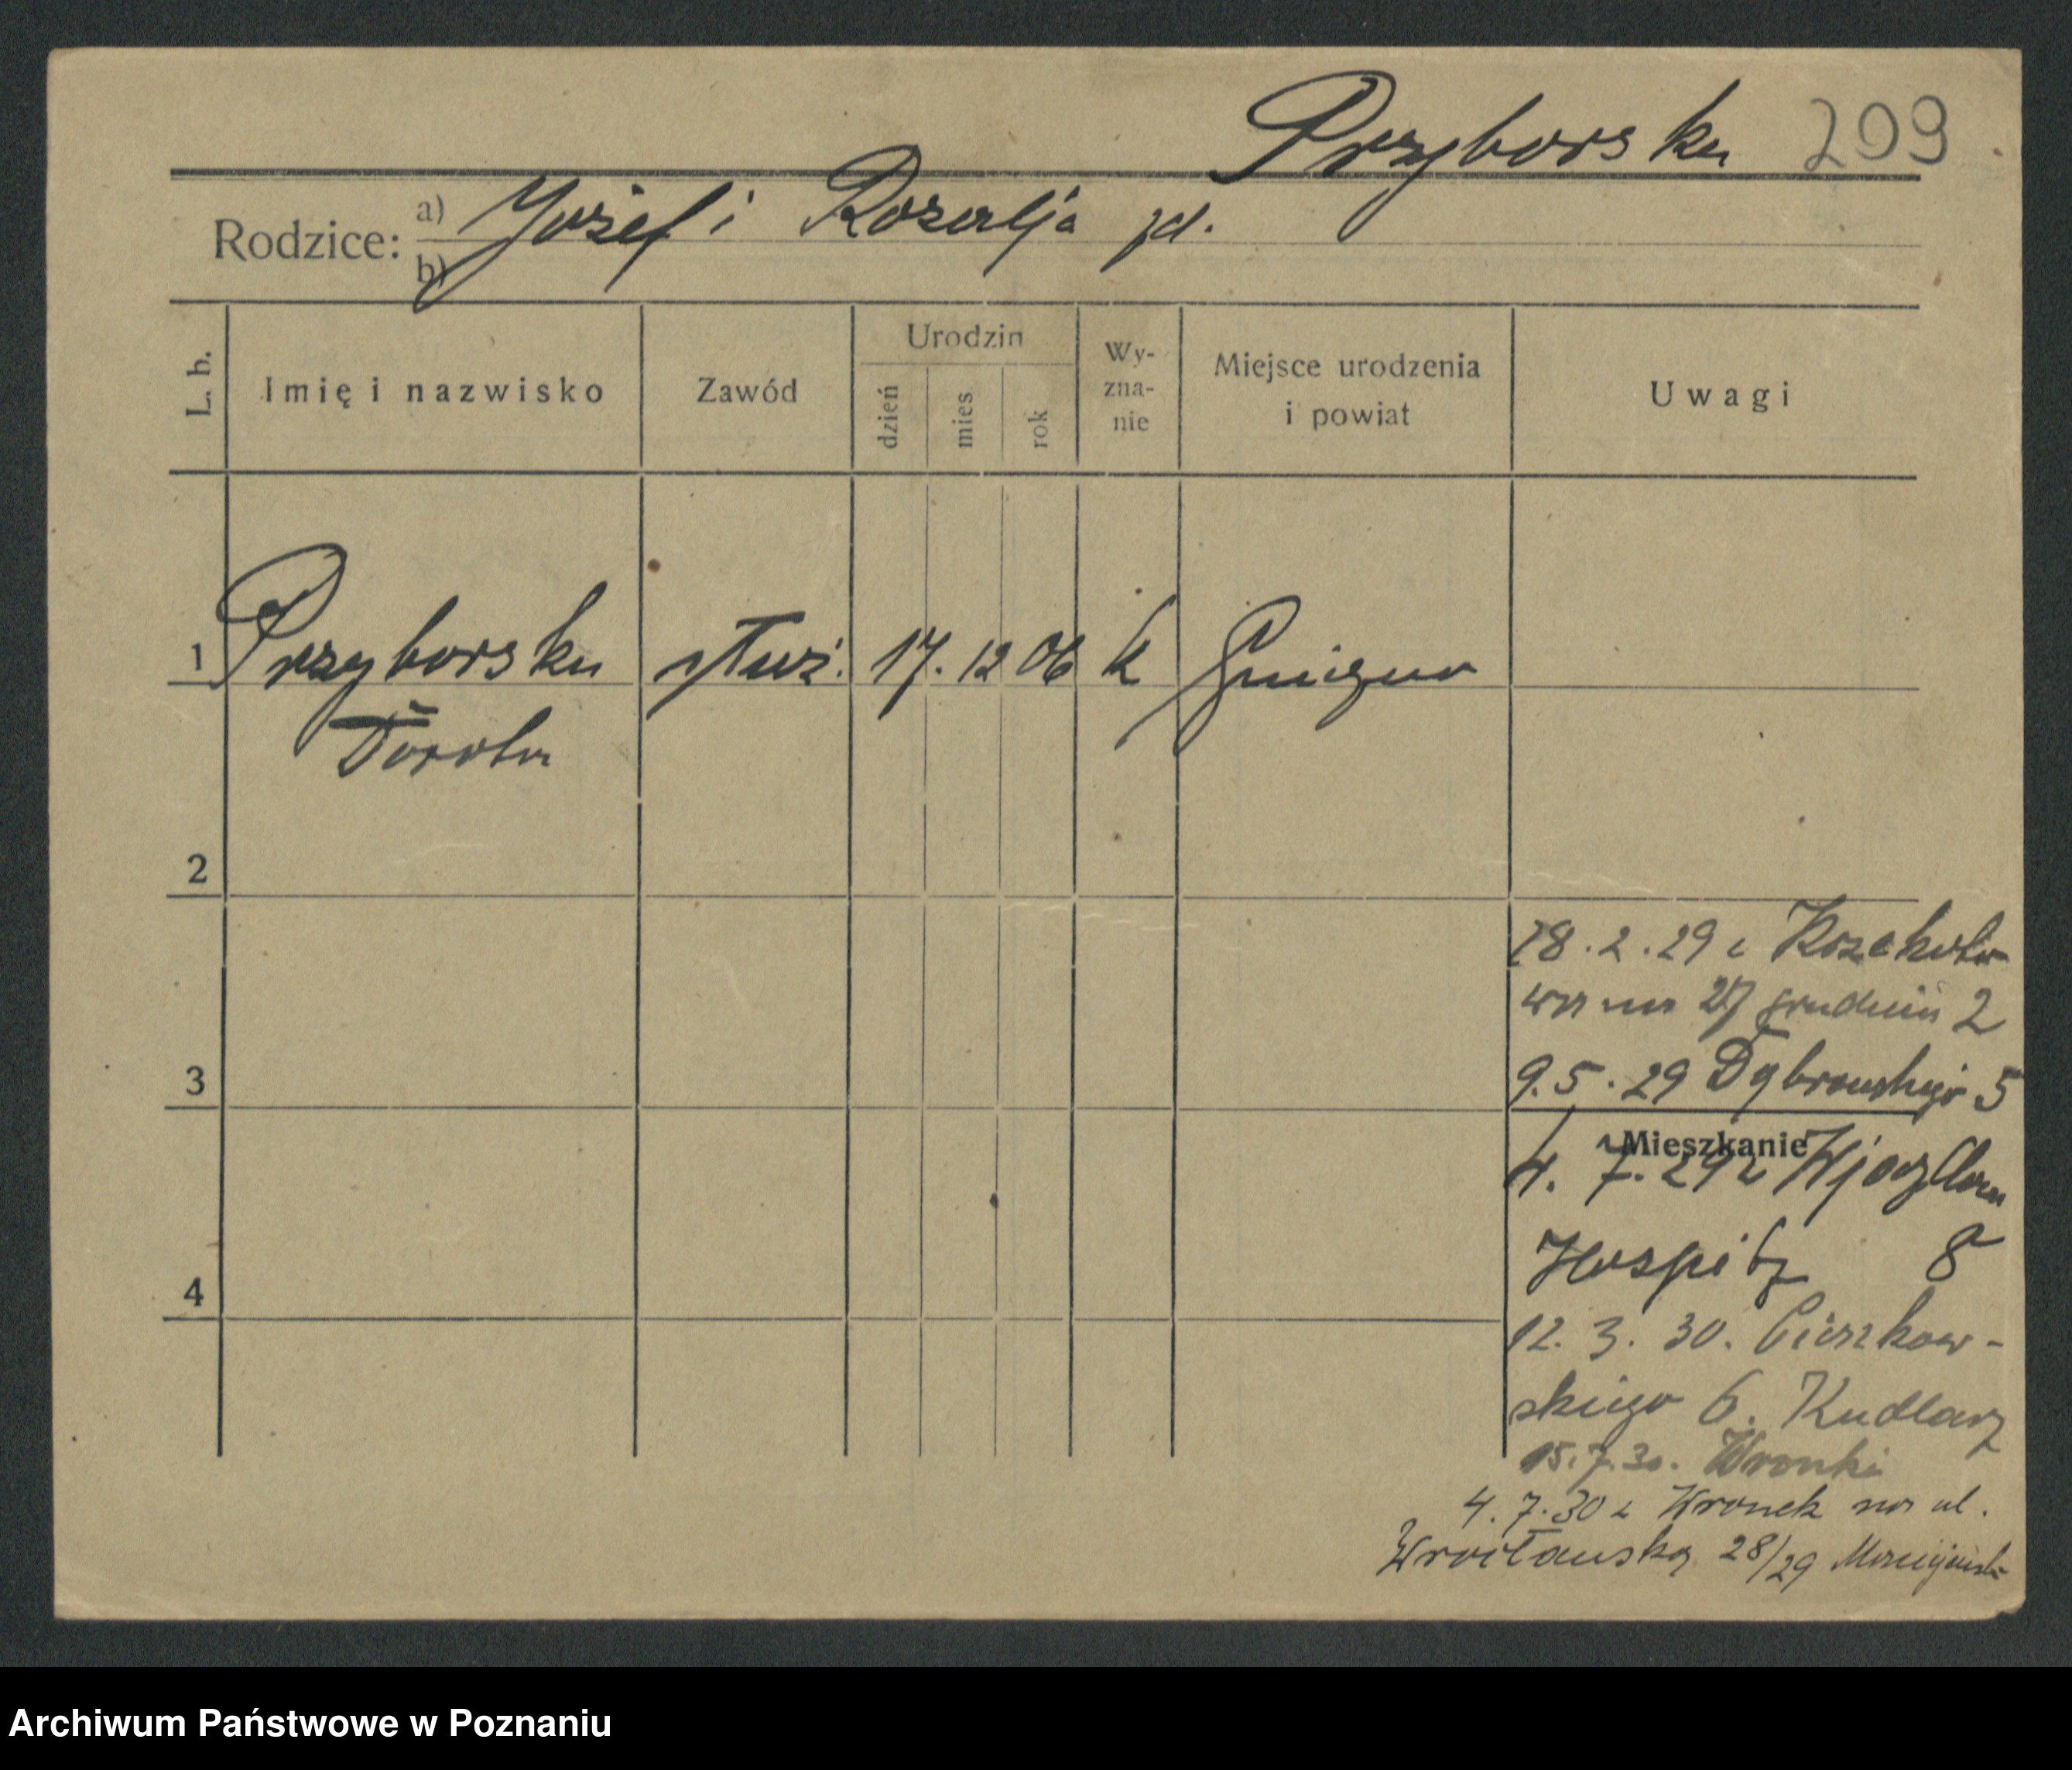 Przyborska 209
Rodzice: a) Józef i Rozalja zd.
b)
L. b. Imię i nazwisko Zawód Urodzin dzień mies rok Wy-zna-nie Miejsce urodzenia i powiat Uwagi
1 Przyborska służ. 17. 12 06 k Gniezno
Dorota
2
18.2.29 z
wa na 27 grudnia 2
3 9.5.29 Dąbrowskiego 5
Mieszkanie
4. 7. 29 z
Hospitz 8
4
12. 3. 30. Cieszkow-
skiego 6. Kudlarz
15.7.30. Wronki
4. 7. 30 z Wronek na ul.
Wrocławską 28/29
Archiwum Państwowe w Poznaniu